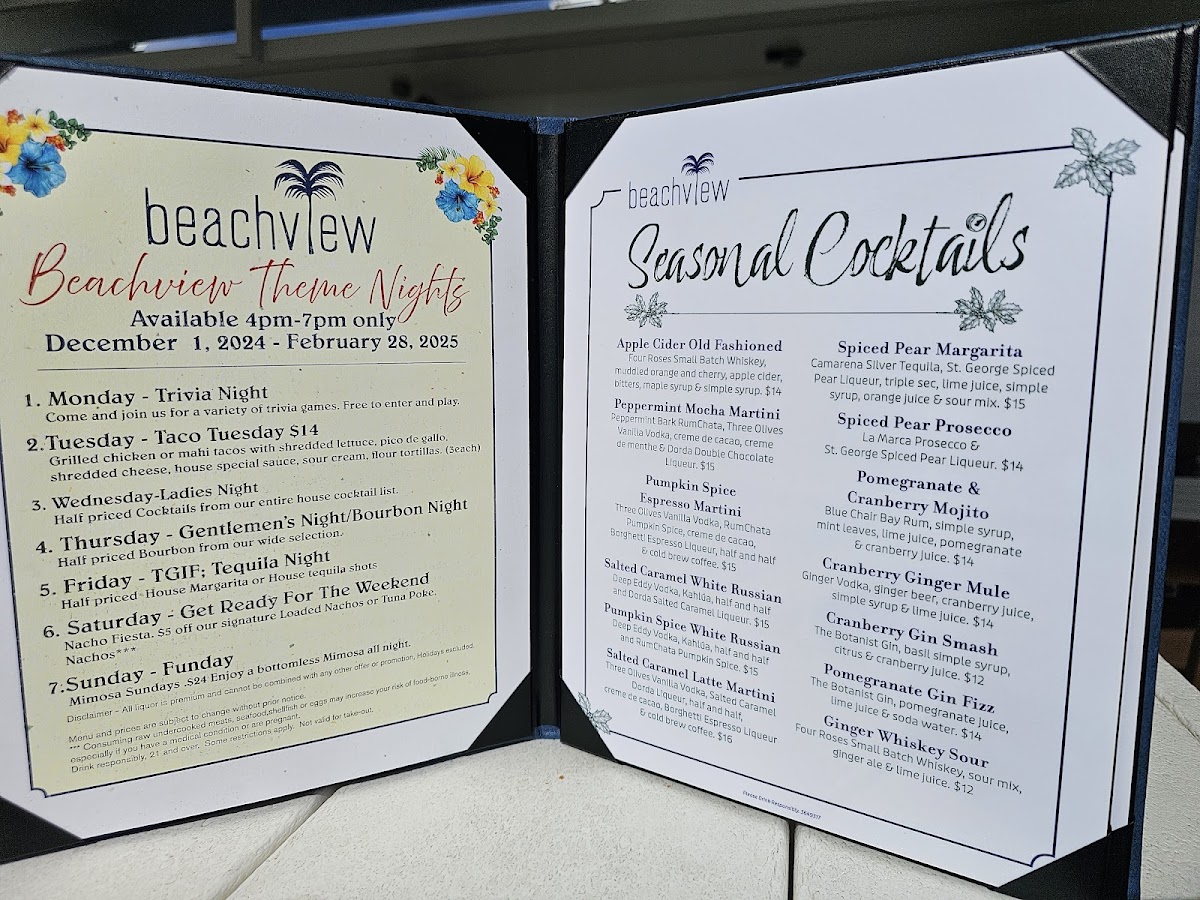 beachview
Beachview Theme Nights
Available 4pm-7pm only
December 1, 2024 - February 28, 2025
1. Monday - Trivia Night
Come and join us for a variety of trivia games. Free to enter and play.
2.Tuesday - Taco Tuesday $14
Grilled chicken or mahi tacos with shredded lettuce, pico de gallo,
shredded cheese, house special sauce, sour cream, flour tortillas. (3each)
3. Wednesday-Ladies Night
Half priced Cocktails from our entire house cocktail list.
4. Thursday - Gentlemen's Night/Bourbon Night
Half priced Bourbon from our wide selection.
5. Friday - TGIF; Tequila Night
Half priced House Margarita or House tequila shots
6. Saturday - Get Ready For The Weekend
Nacho Fiesta. $5 off our signature Loaded Nachos or Tuna Poke.
Nachos***
7.Sunday - Funday
Mimosa Sundays .$24 Enjoy a bottomless Mimosa all night.
Disclaimer - All liquor is premium and cannot be combined with any other offer or promotion, Holidays excluded.
Menu and prices are subject to change without prior notice.
*** Consuming raw undercooked meats, seafood,shellfish or eggs may increase your risk of food-borne illness,
especially if you have a medical condition or are pregnant.
Drink responsibly, 21 and over. Some restrictions apply. Not valid for take-out.
beachview
Seasonal Cocktails
Apple Cider Old Fashioned
Four Roses Small Batch Whiskey,
muddled orange and cherry, apple cider,
bitters, maple syrup & simple syrup. $14
Peppermint Mocha Martini
Peppermint Bark RumChata, Three Olives
Vanilla Vodka, creme de cacao, creme
de menthe & Dorda Double Chocolate
Liqueur. $15
Pumpkin Spice
Espresso Martini
Three Olives Vanilla Vodka, RumChata
Pumpkin Spice, creme de cacao,
Borghetti Espresso Liqueur, half and half
& cold brew coffee. $15
Salted Caramel White Russian
Deep Eddy Vodka, Kahlúa, half and half
and Dorda Salted Caramel Liqueur. $15
Pumpkin Spice White Russian
Deep Eddy Vodka, Kahlúa, half and half
and RumChata Pumpkin Spice. $15
Salted Caramel Latte Martini
Three Olives Vanilla Vodka, Salted Caramel
Dorda Liqueur, half and half,
creme de cacao, Borghetti Espresso Liqueur
& cold brew coffee. $16
Spiced Pear Margarita
Camarena Silver Tequila, St. George Spiced
Pear Liqueur, triple sec, lime juice, simple
syrup, orange juice & sour mix. $15
Spiced Pear Prosecco
La Marca Prosecco &
St. George Spiced Pear Liqueur. $14
Pomegranate &
Cranberry Mojito
Blue Chair Bay Rum, simple syrup,
mint leaves, lime juice, pomegranate
& cranberry juice. $14
Cranberry Ginger Mule
Ginger Vodka, ginger beer, cranberry juice,
simple syrup & lime juice. $14
Cranberry Gin Smash
The Botanist Gin, basil simple syrup,
citrus & cranberry juice. $12
Pomegranate Gin Fizz
The Botanist Gin, pomegranate juice,
lime juice & soda water. $14
Ginger Whiskey Sour
Four Roses Small Batch Whiskey, sour mix,
ginger ale & lime juice. $12
Please Drink Responsibly.